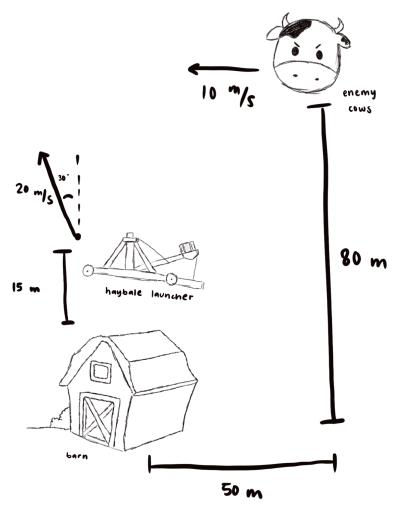 10 m/s
enemy
cows
30°
20 m/s
80 m
15 m
haybale launcher
barn
50 m